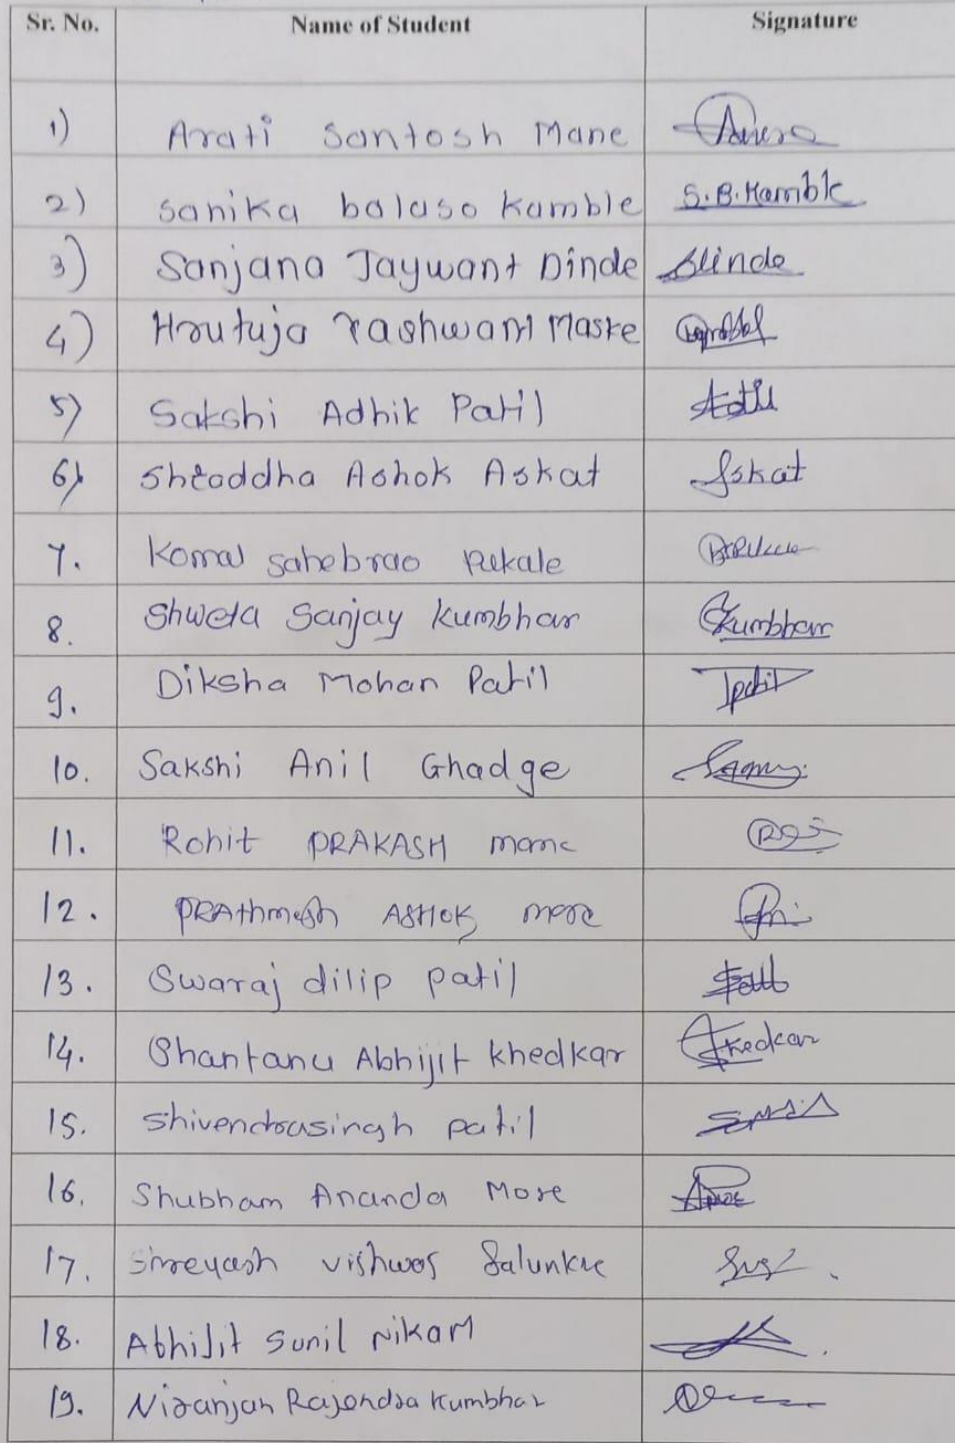 Sr. No. Name of Student Signature
1) Arati Santosh Mane
2) Sanika balaso Kamble S.B.Kamble
3) Sanjana Jaywant Dinde Dinde
4) Hrutuja Yashwant Maske
5) Sakshi Adhik Patil
6) Shraddha Ashok Askat Askat
7. Komal sahebrao
8. Shweta Sanjay Kumbhar Kumbhar
9. Diksha Mohan Patil Patil
10. Sakshi Anil Ghadge
11. Rohit PRAKASH mane
12. PRAthmesh ASHOK more
13. Swaraj dilip patil
14. Shantanu Abhijit Khedkar Khedkar
15. Shivendrasingh patil
16. Shubham Ananda More
17. Shreyash vishwas Salunkhe
18. AbhiJit Sunil NikaM
19. Niranjan Rajendra Kumbhar